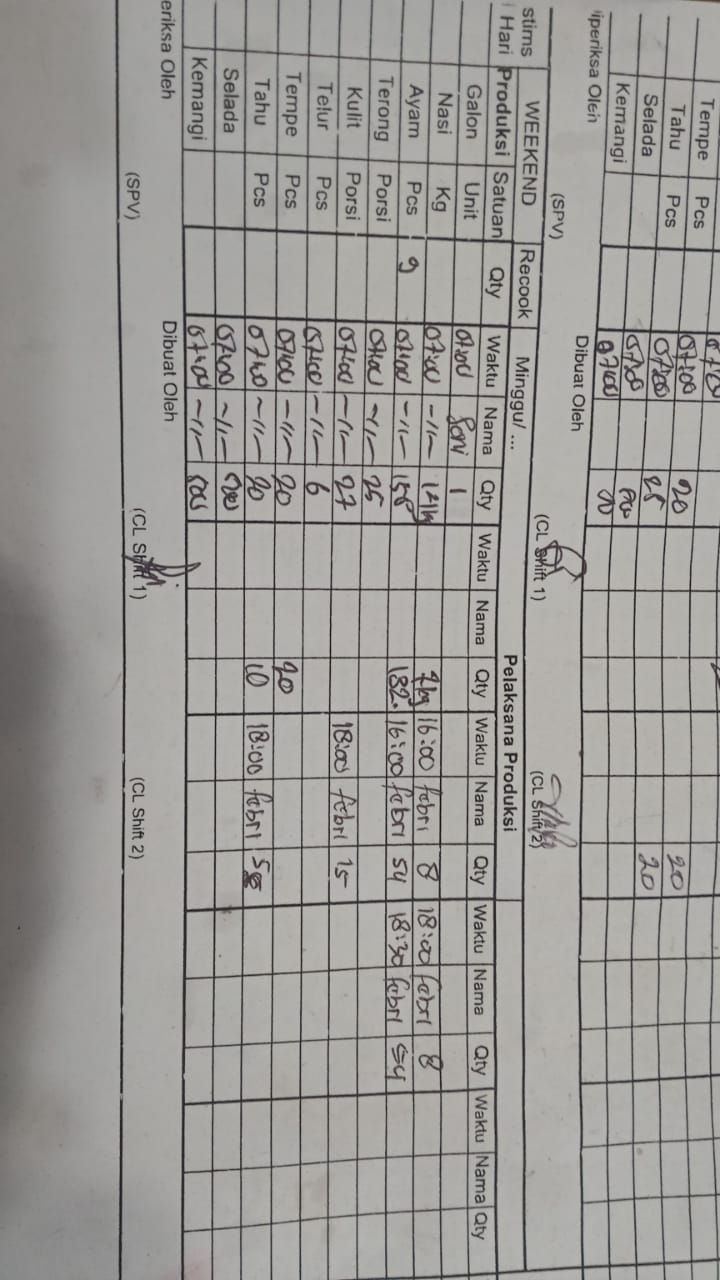 Tempe Pcs 07:00
Tahu Pcs 07:00 20 20
Selada 07:00 25 20
Kemangi 07:00
iperiksa Oleh (SPV) Dibuat Oleh (CL Shift 1) (CL Shift 2)
stims WEEKEND Recook Minggu/ ... Pelaksana Produksi
Hari Produksi Satuan Qty Waktu Nama Qty Waktu Nama Qty Waktu Nama Qty Waktu Nama Qty Waktu Nama Qty
Galon Unit 07:00 Soni 1
Nasi Kg 07:00 -〃- 7kg 16:00 febri 8 18:00 febri 8
Ayam Pcs 9 07:00 -〃- 132 16:00 febri 54 18:30 febri 54
Terong Porsi 07:00 -〃- 25
Kulit Porsi 07:00 -〃- 27 18:00 febri 15
Telur Pcs 07:00 -〃- 6
Tempe Pcs 07:00 -〃- 20 20
Tahu Pcs 07:00 -〃- 20 10 18:00 febri 5
Selada 07:00 -〃-
Kemangi 07:00 -〃-
eriksa Oleh (SPV) Dibuat Oleh (CL Shift 1) (CL Shift 2)